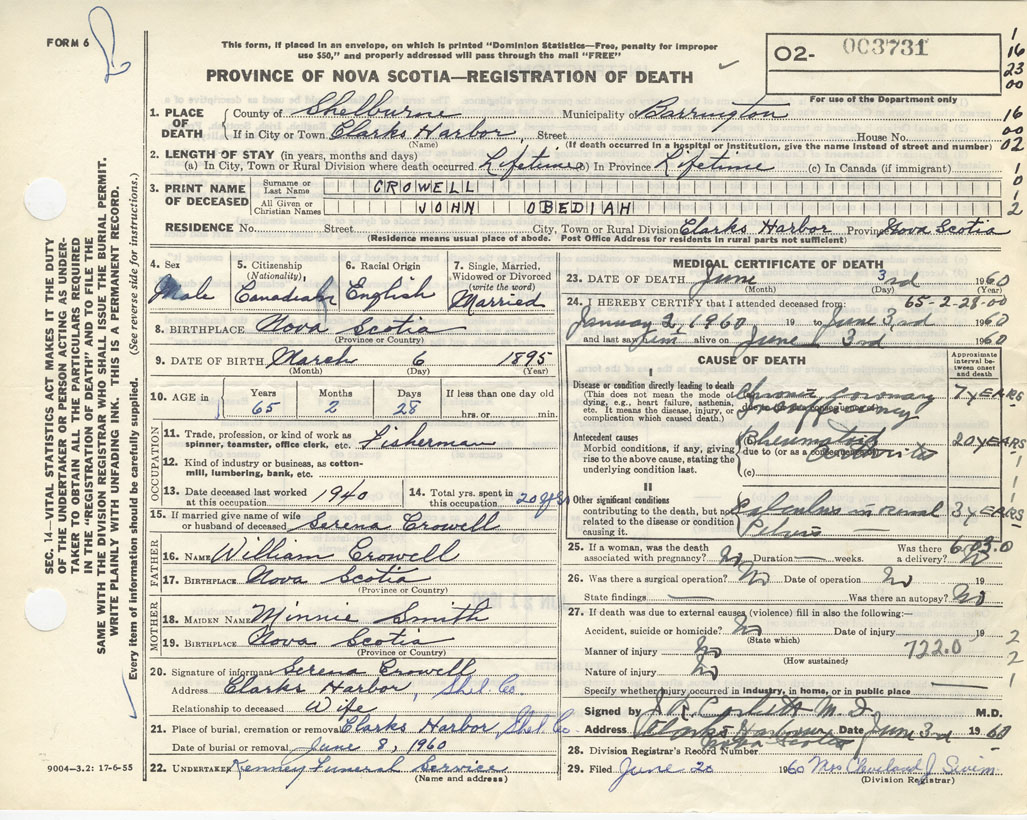 FORM 6
This form, if placed in an envelope, on which is printed "Dominion Statistics—Free, penalty for improper
use $50," and properly addressed will pass through the mail "FREE"
PROVINCE OF NOVA SCOTIA—REGISTRATION OF DEATH
O2- 003731
For use of the Department only
1
16
23
00
16
00
02
1
0
1
2
1. PLACE OF DEATH
County of Shelburne Municipality of Barrington
If in City or Town Clarks Harbor Street House No.
(Name) (If death occurred in a hospital or institution, give the name instead of street and number)
2. LENGTH OF STAY (in years, months and days)
(a) In City, Town or Rural Division where death occurred Lifetime (b) In Province Lifetime (c) In Canada (if immigrant)
3. PRINT NAME OF DECEASED
Surname or Last Name CROWELL
All Given or Christian Names JOHN OBEDIAH
RESIDENCE No. Street City, Town or Rural Division Clarks Harbor Province Nova Scotia
(Residence means usual place of abode. Post Office Address for residents in rural parts not sufficient)
4. Sex
Male
5. Citizenship (Nationality)
Canadian
6. Racial Origin
English
7. Single, Married, Widowed or Divorced (write the word)
Married
8. BIRTHPLACE Nova Scotia
(Province or Country)
9. DATE OF BIRTH March 6 1895
(Month) (Day) (Year)
10. AGE in
Years Months Days If less than one day old
65 2 28 hrs. or min.
OCCUPATION
11. Trade, profession, or kind of work as spinner, teamster, office clerk, etc. Fisherman
12. Kind of industry or business, as cotton-mill, lumbering, bank, etc.
13. Date deceased last worked at this occupation 1940
14. Total yrs. spent in this occupation 20 yrs
15. If married give name of wife or husband of deceased Serena Crowell
FATHER
16. NAME William Crowell
17. BIRTHPLACE Nova Scotia
(Province or Country)
MOTHER
18. MAIDEN NAME Minnie Smith
19. BIRTHPLACE Nova Scotia
(Province or Country)
20. Signature of informant Serena Crowell
Address Clarks Harbor, Shel. Co.
Relationship to deceased Wife
21. Place of burial, cremation or removal Clarks Harbor, Shel Co
Date of burial or removal June 8, 1960
22. UNDERTAKER Kenney Funeral Service
(Name and address)
MEDICAL CERTIFICATE OF DEATH
23. DATE OF DEATH June 3rd 1960
(Month) (Day) (Year)
24. I HEREBY CERTIFY that I attended deceased from: 65-2-28-00
January 2, 1960 19 to June 3rd 1960
and last saw him alive on June 3rd 1960
CAUSE OF DEATH
Approximate interval between onset and death
I
Disease or condition directly leading to death
(This does not mean the mode of dying, e.g., heart failure, asthenia, etc. It means the disease, injury, or complication which caused death.)
Chronic coronary
7 YEARS
Antecedent causes
Morbid conditions, if any, giving rise to the above cause, stating the underlying condition last.
Rheumatoid
due to (or as a consequence of)
Arthritis
20 YEARS
(c)
II
Other significant conditions
contributing to the death, but not related to the disease or condition causing it.
Calculus in renal
Pelvis
3 YEARS
25. If a woman, was the death associated with pregnancy? No Duration — weeks. Was there a delivery? No
603.0
26. Was there a surgical operation? No Date of operation No 19
State findings — Was there an autopsy? No
27. If death was due to external causes (violence) fill in also the following:—
Accident, suicide or homicide? No Date of injury 19
(State which)
Manner of injury No 722.0
(How sustained)
Nature of injury No
Specify whether injury occurred in industry, in home, or in public place —
2
2
1
Signed by M.D. M.D.
Address Clarks Harbour Date June 3rd 1960
Nova Scotia
28. Division Registrar's Record Number
29. Filed June 20 1960 Mrs Cleveland J
(Division Registrar)
9004—3.2: 17-6-55
SEC. 14—VITAL STATISTICS ACT MAKES IT THE DUTY
OF THE UNDERTAKER OR PERSON ACTING AS UNDER-
TAKER TO OBTAIN ALL THE PARTICULARS REQUIRED
IN THE "REGISTRATION OF DEATH" AND TO FILE THE
SAME WITH THE DIVISION REGISTRAR WHO SHALL ISSUE THE BURIAL PERMIT.
WRITE PLAINLY WITH UNFADING INK. THIS IS A PERMANENT RECORD.
Every item of information should be carefully supplied. (See reverse side for instructions.)